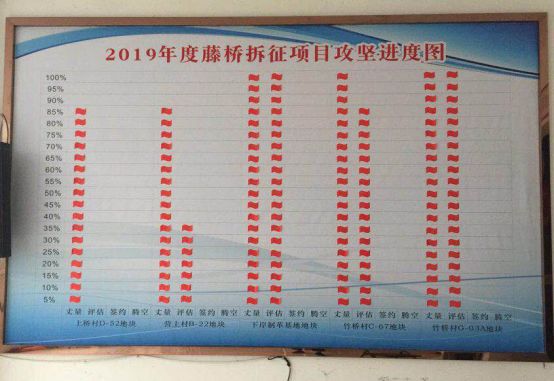 2019年度藤桥拆征项目攻坚进度图
100%
95%
90%
85%
80%
75%
70%
65%
60%
55%
50%
45%
40%
35%
30%
25%
20%
15%
10%
5%
丈量 评估 签约 腾空 丈量 评估 签约 腾空 丈量 评估 签约 腾空 丈量 评估 签约 腾空 丈量 评估 签约 腾空
上桥村D-52地块 营上村B-22地块 下岸制革基地地块 竹桥村C-67地块 竹桥村G-03A地块